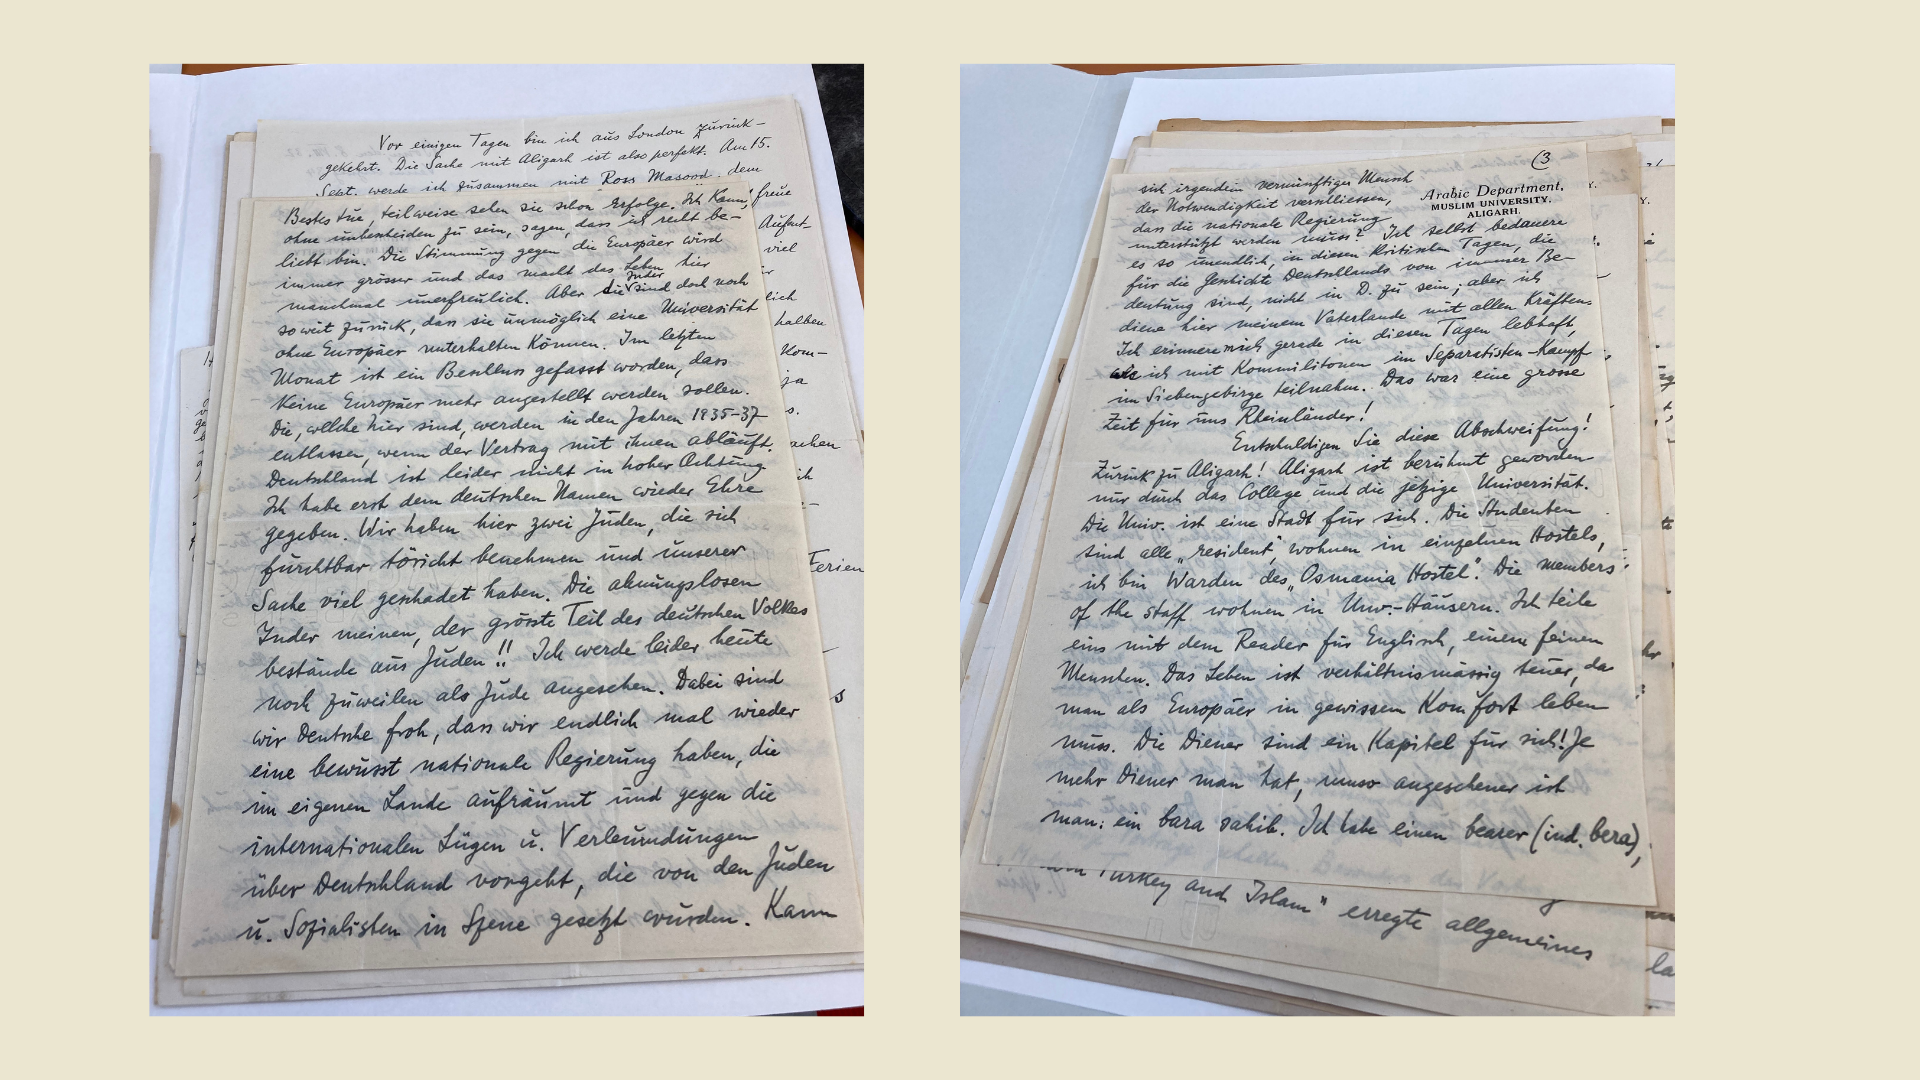 Vor einigen Tagen bin ich aus London zurück-
gekehrt. Die Sache mit Aligarh ist also perfekt. Am 15.
Sept. werde ich zusammen mit Ross Masood, dem
freue
Aufent-
viel
lich
halben
Kom-
ja
s.
achen
ich
Ferien
s
Bestes tue, teilweise sehen sie schon Erfolge. Ich kann,
ohne unbescheiden zu sein, sagen, dass ich recht be-
liebt bin. Die Stimmung gegen die Europäer wird
immer grösser und das macht das Leben hier
manchmal unerfreulich. Aber die Inder sind doch noch
soweit zurück, dass sie unmöglich eine Universität
ohne Europäer unterhalten können. Im letzten
Monat ist ein Beschluss gefasst worden, dass
keine Europäer mehr angestellt werden sollen.
Die, welche hier sind, werden in den Jahren 1935-37
entlassen, wenn der Vertrag mit ihnen abläuft.
Deutschland ist leider nicht in hoher Achtung.
Ich habe erst dem deutschen Namen wieder Ehre
gegeben. Wir haben hier zwei Juden, die sich
furchtbar töricht benehmen und unserer
Sache viel geschadet haben. Die ahnungslosen
Inder meinen, der grösste Teil des deutschen Volkes
bestände aus Juden!! Ich werde leider heute
noch zuweilen als Jude angesehen. Dabei sind
wir Deutsche froh, dass wir endlich mal wieder
eine bewusst nationale Regierung haben, die
im eigenen Lande aufräumt und gegen die
internationalen Lügen u. Verleumdungen
über Deutschland vorgeht, die von den Juden
u. Sozialisten in Szene gesetzt wurden. Kann
(3
Arabic Department,
MUSLIM UNIVERSITY,
ALIGARH.
sich irgendein vernünftiger Mensch
der Notwendigkeit verschliessen,
dass die nationale Regierung
unterstützt werden muss? Ich selbst bedauere
es so unendlich, in diesen kritischen Tagen, die
für die Geschichte Deutschlands von immer Be-
deutung sind, nicht in D. zu sein; aber ich
diene hier meinem Vaterlande mit allen Kräften.
Ich erinnere mich gerade in diesen Tagen lebhaft,
wie ich mit Kommilitonen im Separatisten-Kampf
im Siebengebirge teilnahm. Das war eine grosse
Zeit für uns Rheinländer!
Entschuldigen Sie diese Abschweifung!
Zurück zu Aligarh! Aligarh ist berühmt geworden
nur durch das College und die jetzige Universität.
Die Univ. ist eine Stadt für sich. Die Studenten
sind alle „resident“, wohnen in einzelnen Hostels,
ich bin Warden des „Osmania Hostel“. Die members
of the staff wohnen in Univ.-Häusern. Ich teile
eins mit dem Reader für Englisch, einem feinen
Menschen. Das Leben ist verhältnismässig teuer, da
man als Europäer in gewissem Komfort leben
muss. Die Diener sind ein Kapitel für sich! Je
mehr Diener man hat, umso angesehener ist
man: ein bara sahib. Ich habe einen bearer (ind. bera),
Turkey and Islam“ erregte allgemeines